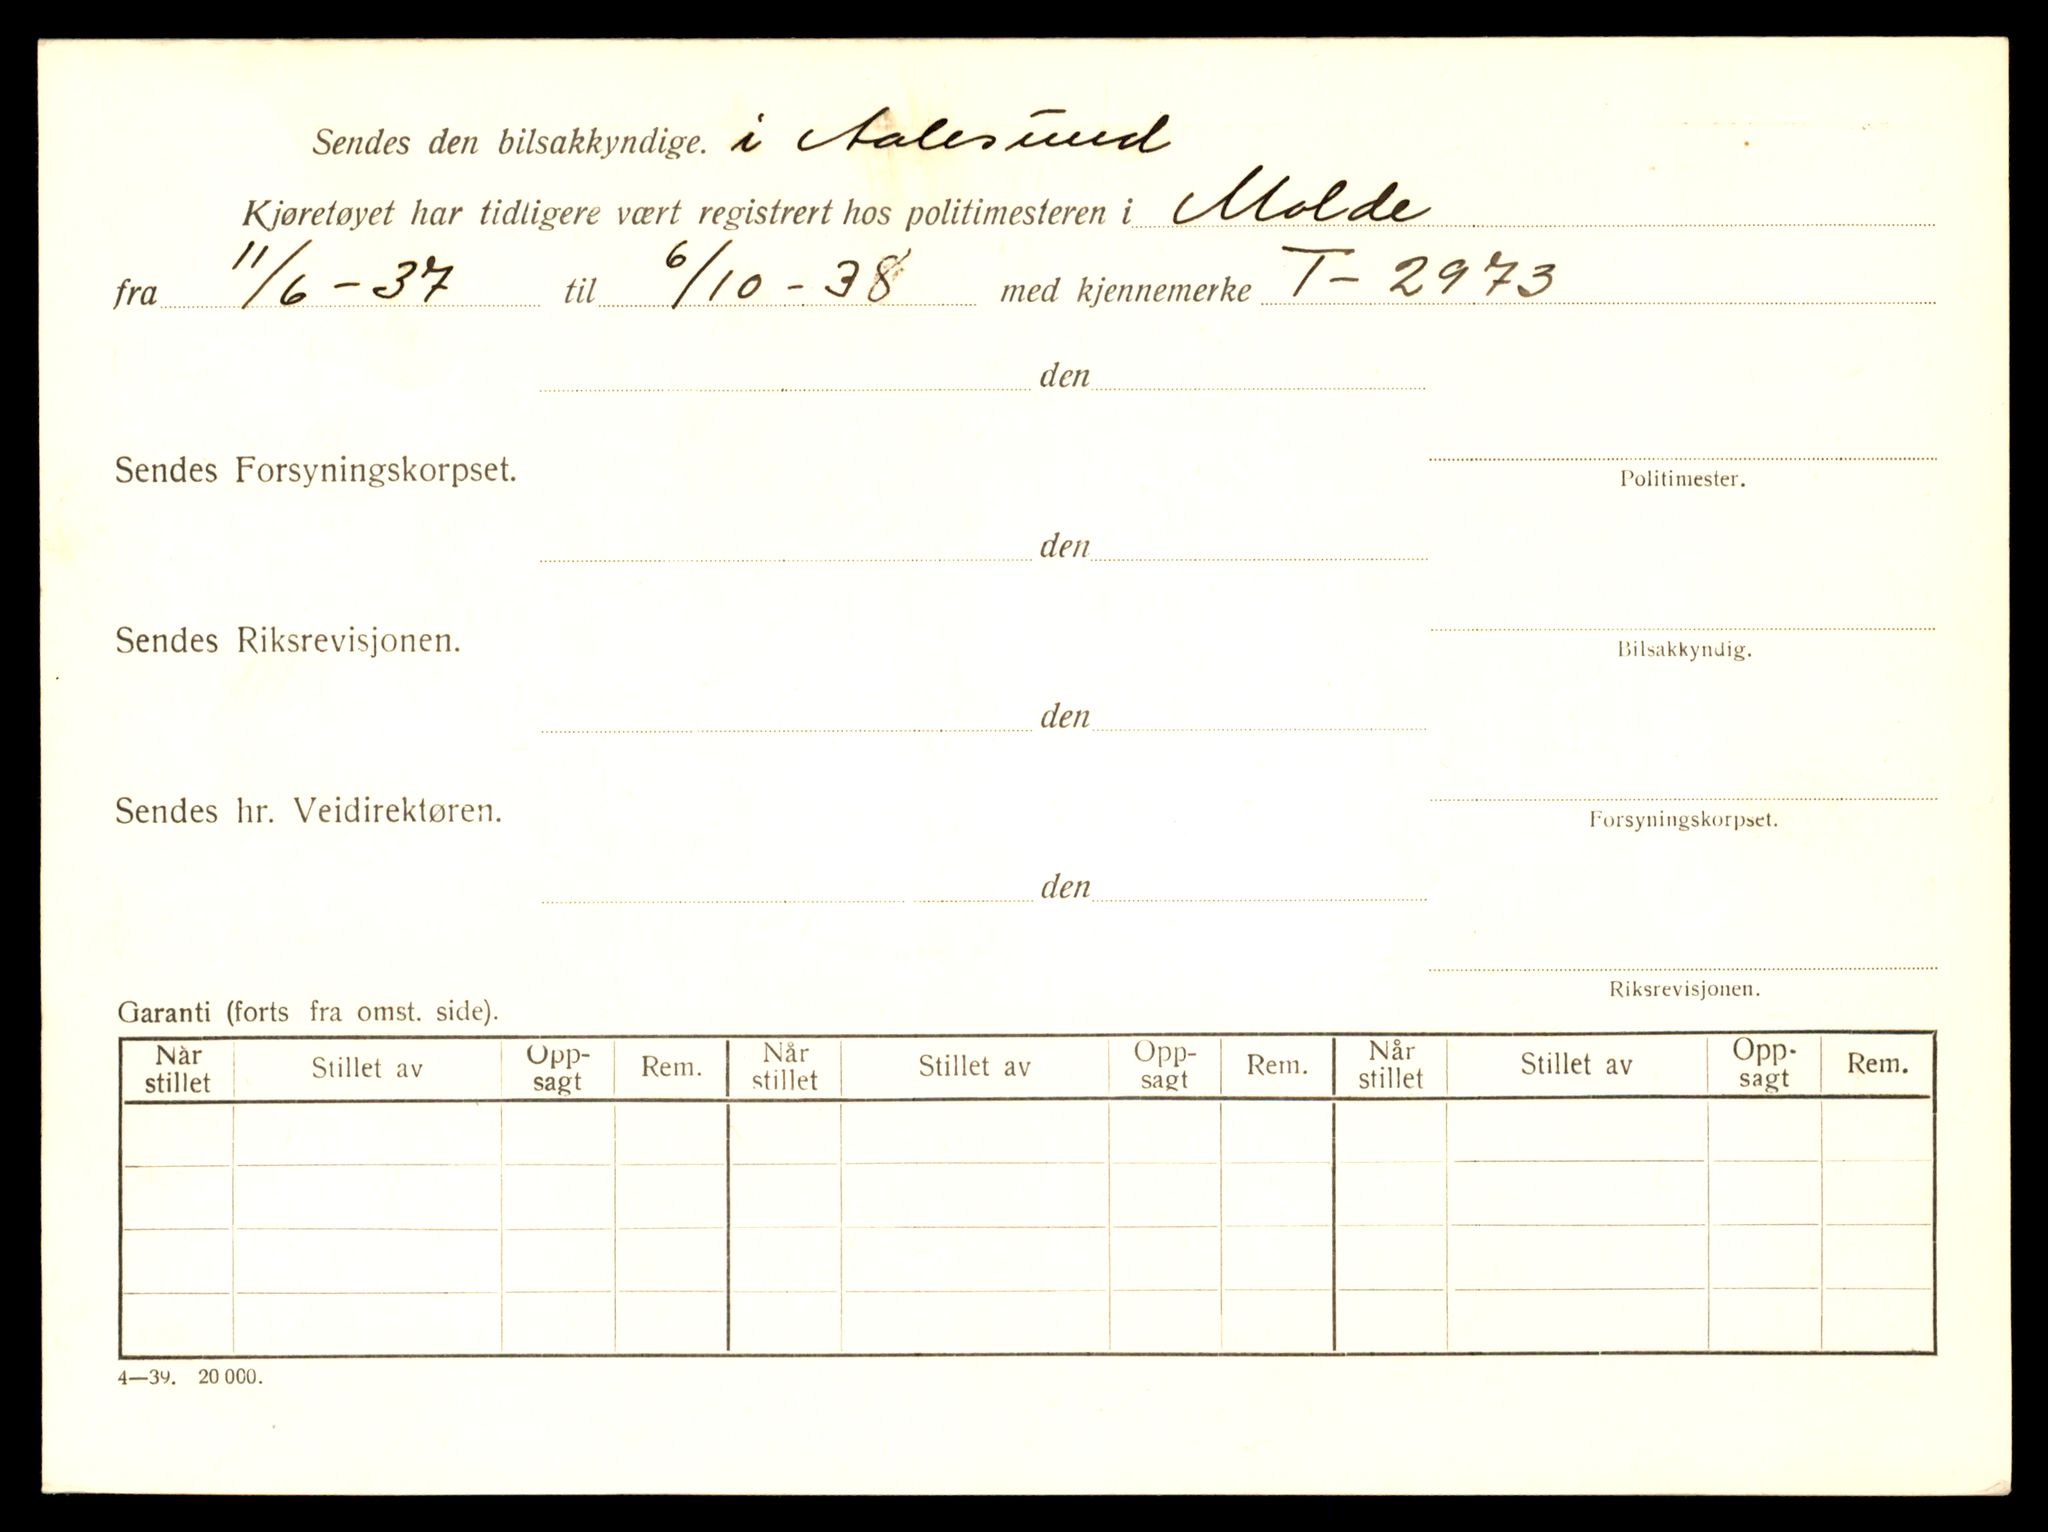 Sendes den bilsakkyndige. i Aalesund
Kjøretøyet har tidligere vært registrert hos politimesteren i Molde
fra 11/6-37 til 6/10-38 med kjennemerke T-2973
den
Sendes Forsyningskorpset.
Politimester.
den
Sendes Riksrevisjonen.
Bilsakkyndig.
den
Sendes hr. Veidirektøren.
Forsyningskorpset.
den
Riksrevisjonen.
Garanti (forts fra omst. side).
Når stillet Stillet av Opp-sagt Rem. Når stillet Stillet av Opp-sagt Rem. Når stillet Stillet av Opp-sagt Rem.
4—39. 20 000.